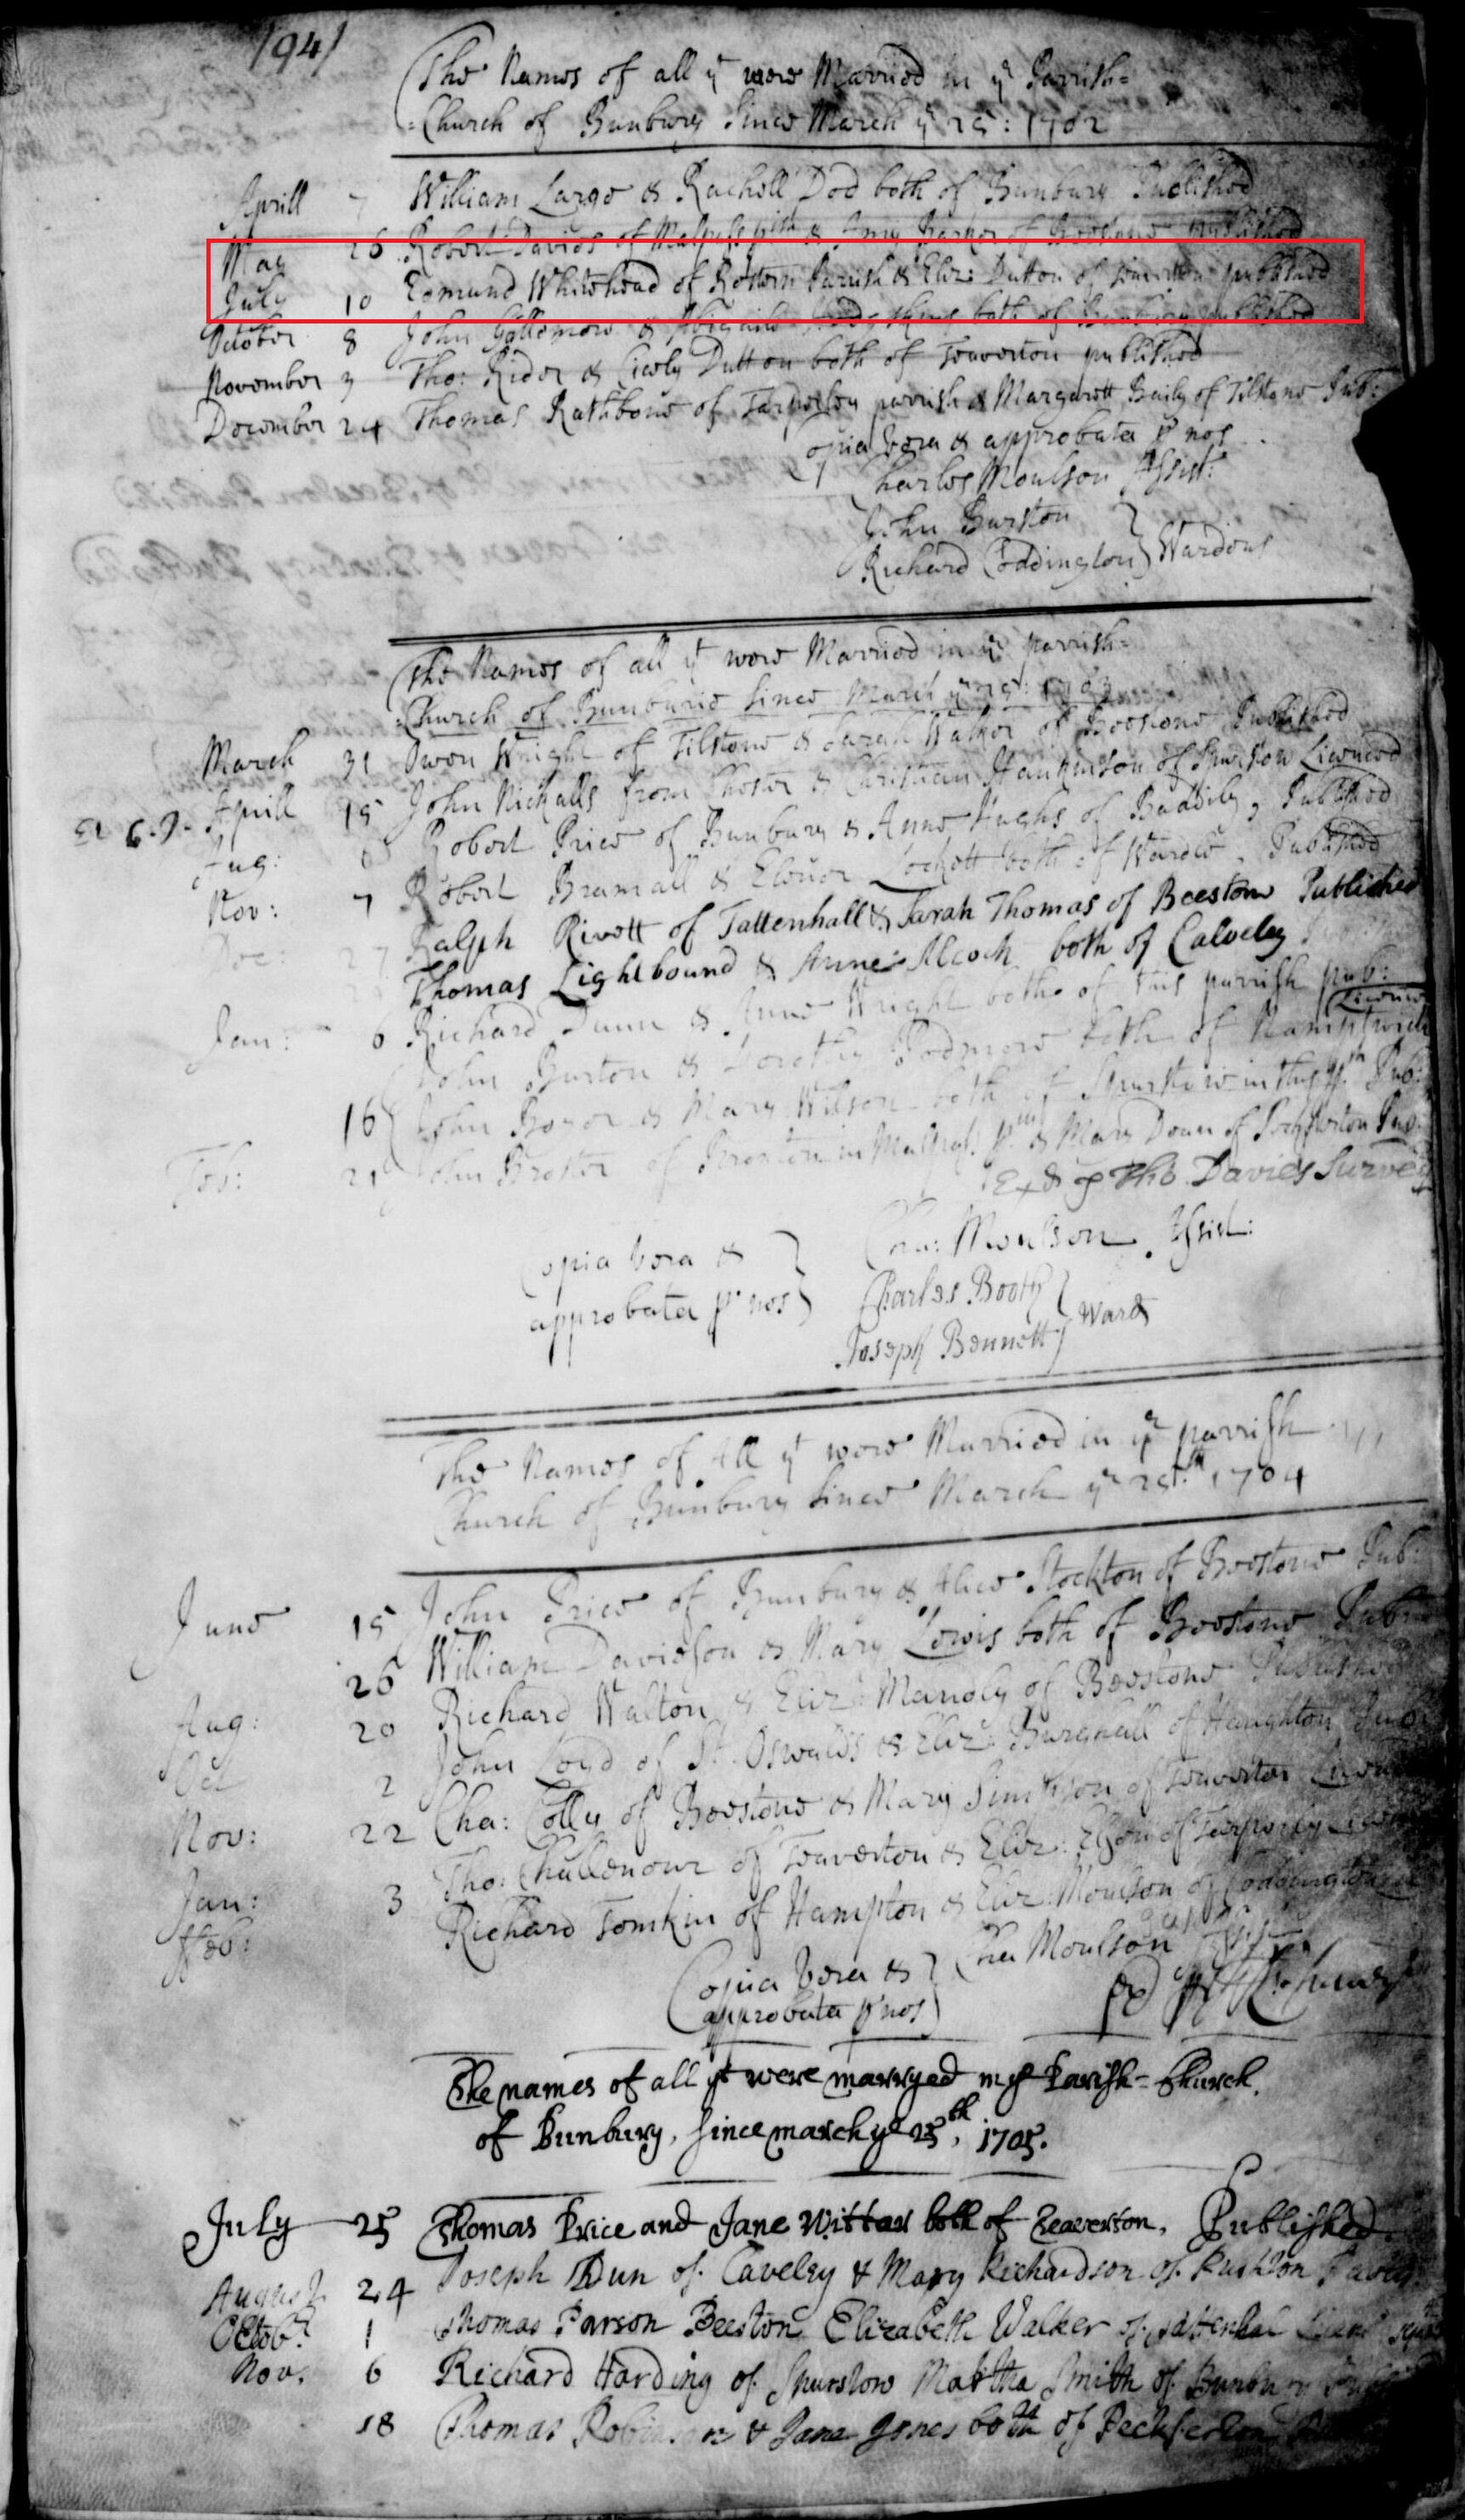 194
The Names of all yt were Married in ye Parrish=
=Church of Bunbury Since March ye 25: 1702
Aprill 7 William Large & Rachell Dod both of Bunbury Published
May 26 Robert Davies of Malpass & Amy Barker of Beestone published
July 10 Edmund Whitehead of Rostern Parrish & Eliz: Dutton of Teaverton published
October 8 John & Abigaile both of Bunbury published
November 3 Tho: Rider & Cicely Dutton both of Teaverton published
December 24 Thomas Rathbone of Tarporley parrish & Margarett Baily of Tilstone Pub:
Copia vera & approbata pr nos
Charles Moulson Assist:
John Burston
Richard Coddington } Wardens
The Names of all yt were Married in ye parrish=
=Church of Bunburie Since March ye 25: 1703
March 31 Owen Wright of Tilstone & Sarah Walker of Beestone Published
Aprill 15 John Nickalls from Chester & Christian Hankinson of Spurstow Licenced
Aug: 6 Robert Price of Bunbury & Anne Hughs of Baddily, Published
Nov: 7 Robert Bramall & Elenor Lockett both of Wardle, Published
Dec: 27 Ralph Rivett of Tattenhall & Sarah Thomas of Beeston Published
Thomas Lightbound & Anne Alcock both of Calveley
Jan: 6 Richard Dunn & Anne Wright both of this parrish pub:
John Burton & Dorothy Podmore both of Namptwich Licence
16 John & Mary Wilson both of Spurstow in this psh Pub:
Feb: 21 John of in Malpas & Mary Doun of Peckforton Pub:
Exd p Tho Davies Survey
Copia vera &
approbata pr nos }
Cha: Moulson Assist:
Charles Booth
Joseph Bennett } Wards
The Names of All yt were Married in ye parrish
Church of Bunbury Since March ye 25th 1704
June 15 John Price of Bunbury & Alice Stockton of Beestone Pub:
26 William Davidson & Mary Lewis both of Beestone Pub:
Aug: 20 Richard Walton & Eliz: Manoly of Beestone Published
Oct 2 John Loyd of St. Oswalds & Eliz: Burghall of Haughton Pub:
Nov: 22 Cha: Colly of Beestone & Mary Simpson of Teaverton Licence
Jan: 3 Tho: Challenour of Teaverton & Eliz: of Tarporley
Feb: Richard Tomkin of Hampton & Eliz: Moulson of Coddington
Copia vera &
approbata pr nos }
Cha Moulson
The names of all yt were marryed in ye Parish=Church
of Bunbury, since march ye 25th, 1705.
July 25 Thomas Price and Jane Witter both of Teaverton, Published
August 24 Joseph Dun of Caveley & Mary Richardson of Rushton
Octobr 1 Thomas Parson Beeston Elizabeth Walker of
Nov. 6 Richard Harding of Spurstow Martha Smith of Bunbury
18 Thomas Robinson & Jane Jones both of Peckferton